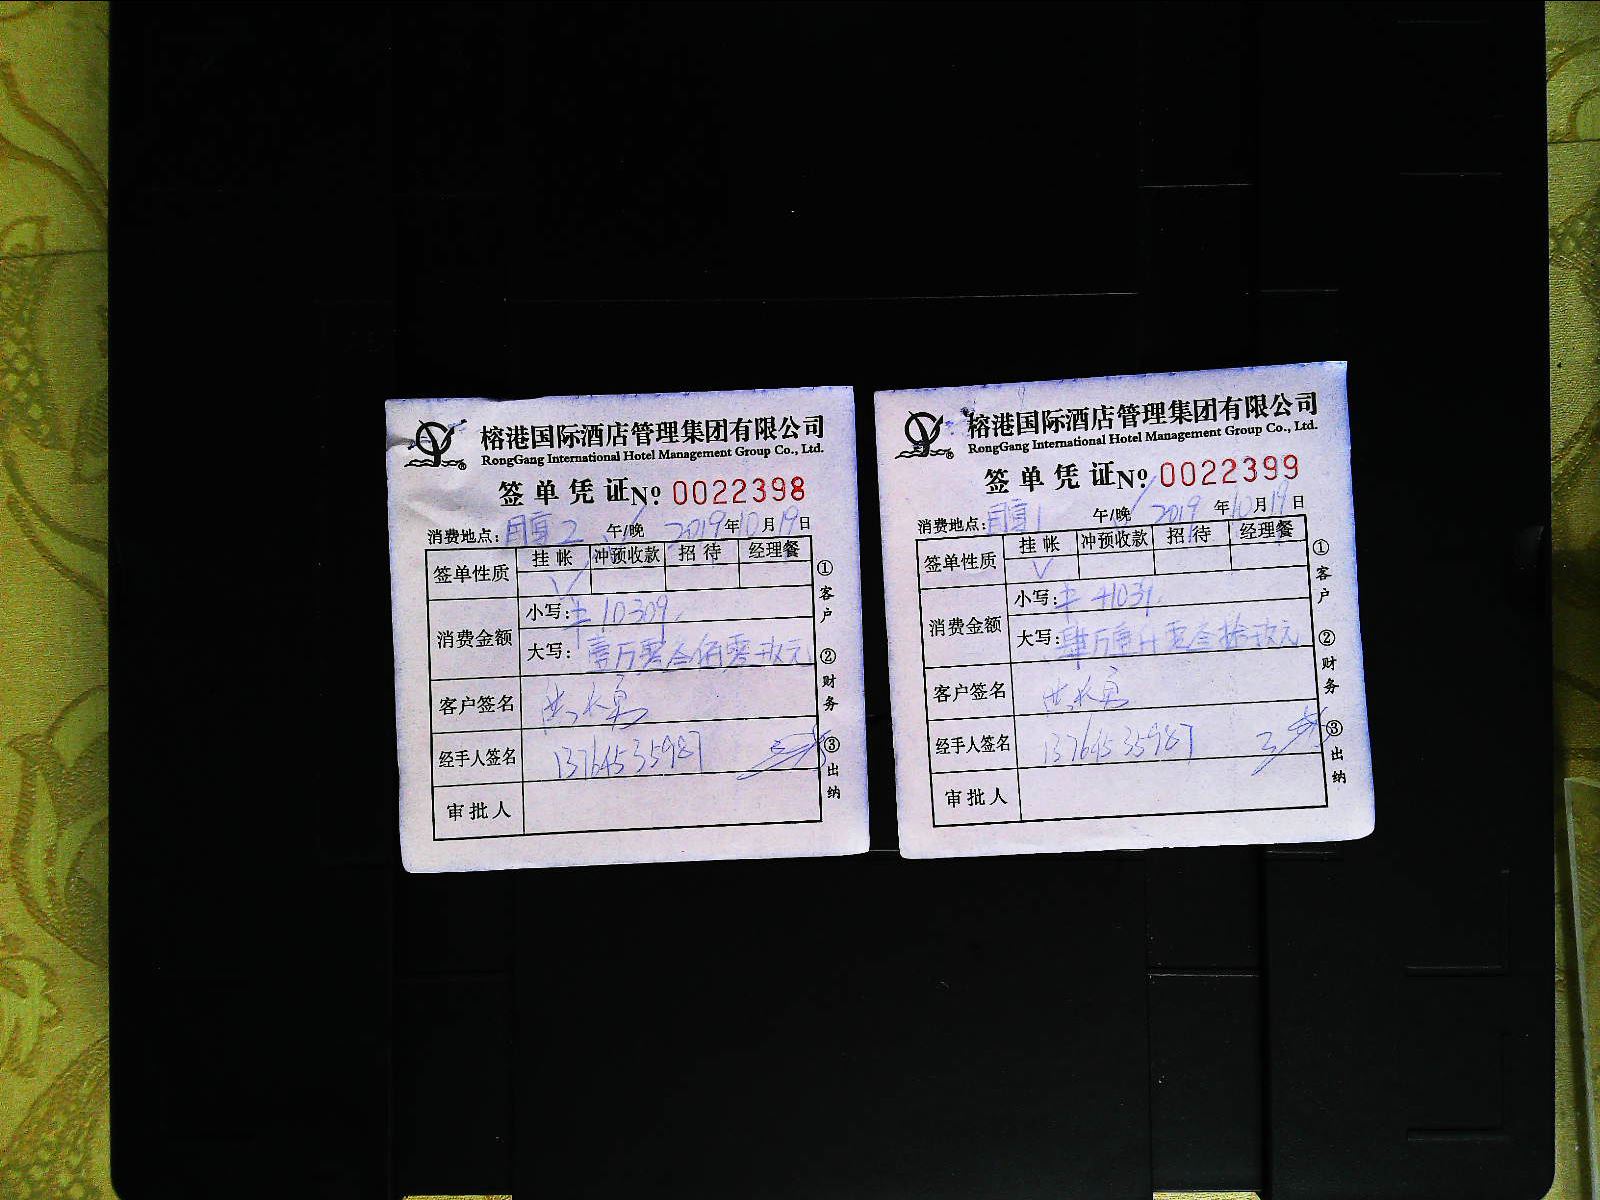 榕港国际酒店管理集团有限公司
RongGang International Hotel Management Group Co., Ltd.
签单凭证 No. 0022398
消费地点: 2 午/晚 2019年10月19日
签单性质 挂帐 冲预收款 招待 经理餐
√
消费金额 小写: 10309
大写: 壹万零叁佰零玖元
客户签名
经手人签名 13764535987
审批人
①客户 ②财务 ③出纳
榕港国际酒店管理集团有限公司
RongGang International Hotel Management Group Co., Ltd.
签单凭证 No. 0022399
消费地点: 1 午/晚 2019年10月19日
签单性质 挂帐 冲预收款 招待 经理餐
√
消费金额 小写:
大写:
客户签名
经手人签名 13764535987
审批人
①客户 ②财务 ③出纳